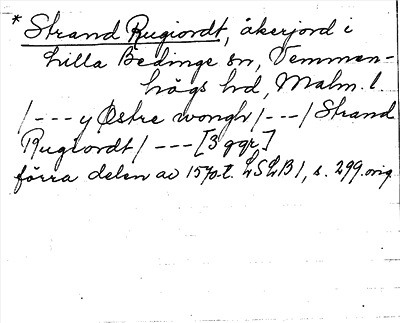 * Strand Rugiordt, åkerjord i
Lilla Bedinge sn, Vemmen-
högs hd, Malm. l.
/--- y Østre wongh /---/ Strand
Rugiordt / --- [3 ggr]
förra delen av 1570.t. LSLB 1, s. 299. orig.